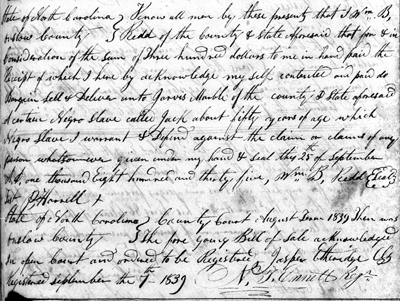 State of North Carolina } Know all men by these presents that I Wm B,
Onslow County } Kidd of the County & State aforesaid that for & in
Consideration of the Sum of Three hundred dollars to me in hand paid the
Receipt of which I here by acknowledge my self contented and paid do
Bargain Sell & Deliver unto Jarves Marble of the county & State aforesaid
A certain Negro Slave called Jack about fifty years of age which
Negro Slave I warrant & Defend against the claim or claims of any
person whatsomever given under my hand & Seal this 25th of September
A,D, one thousand Eight hundred and thirty five, Wm B, Kidd Seal
Harrell
State of North Carolina } County Court August Term 1839 Then was
Onslow County } the fore going Bill of Sale acknowledged
in open Court and ordered to be Registered Jasper Etheridge Clk
Registered September the 7th 1839